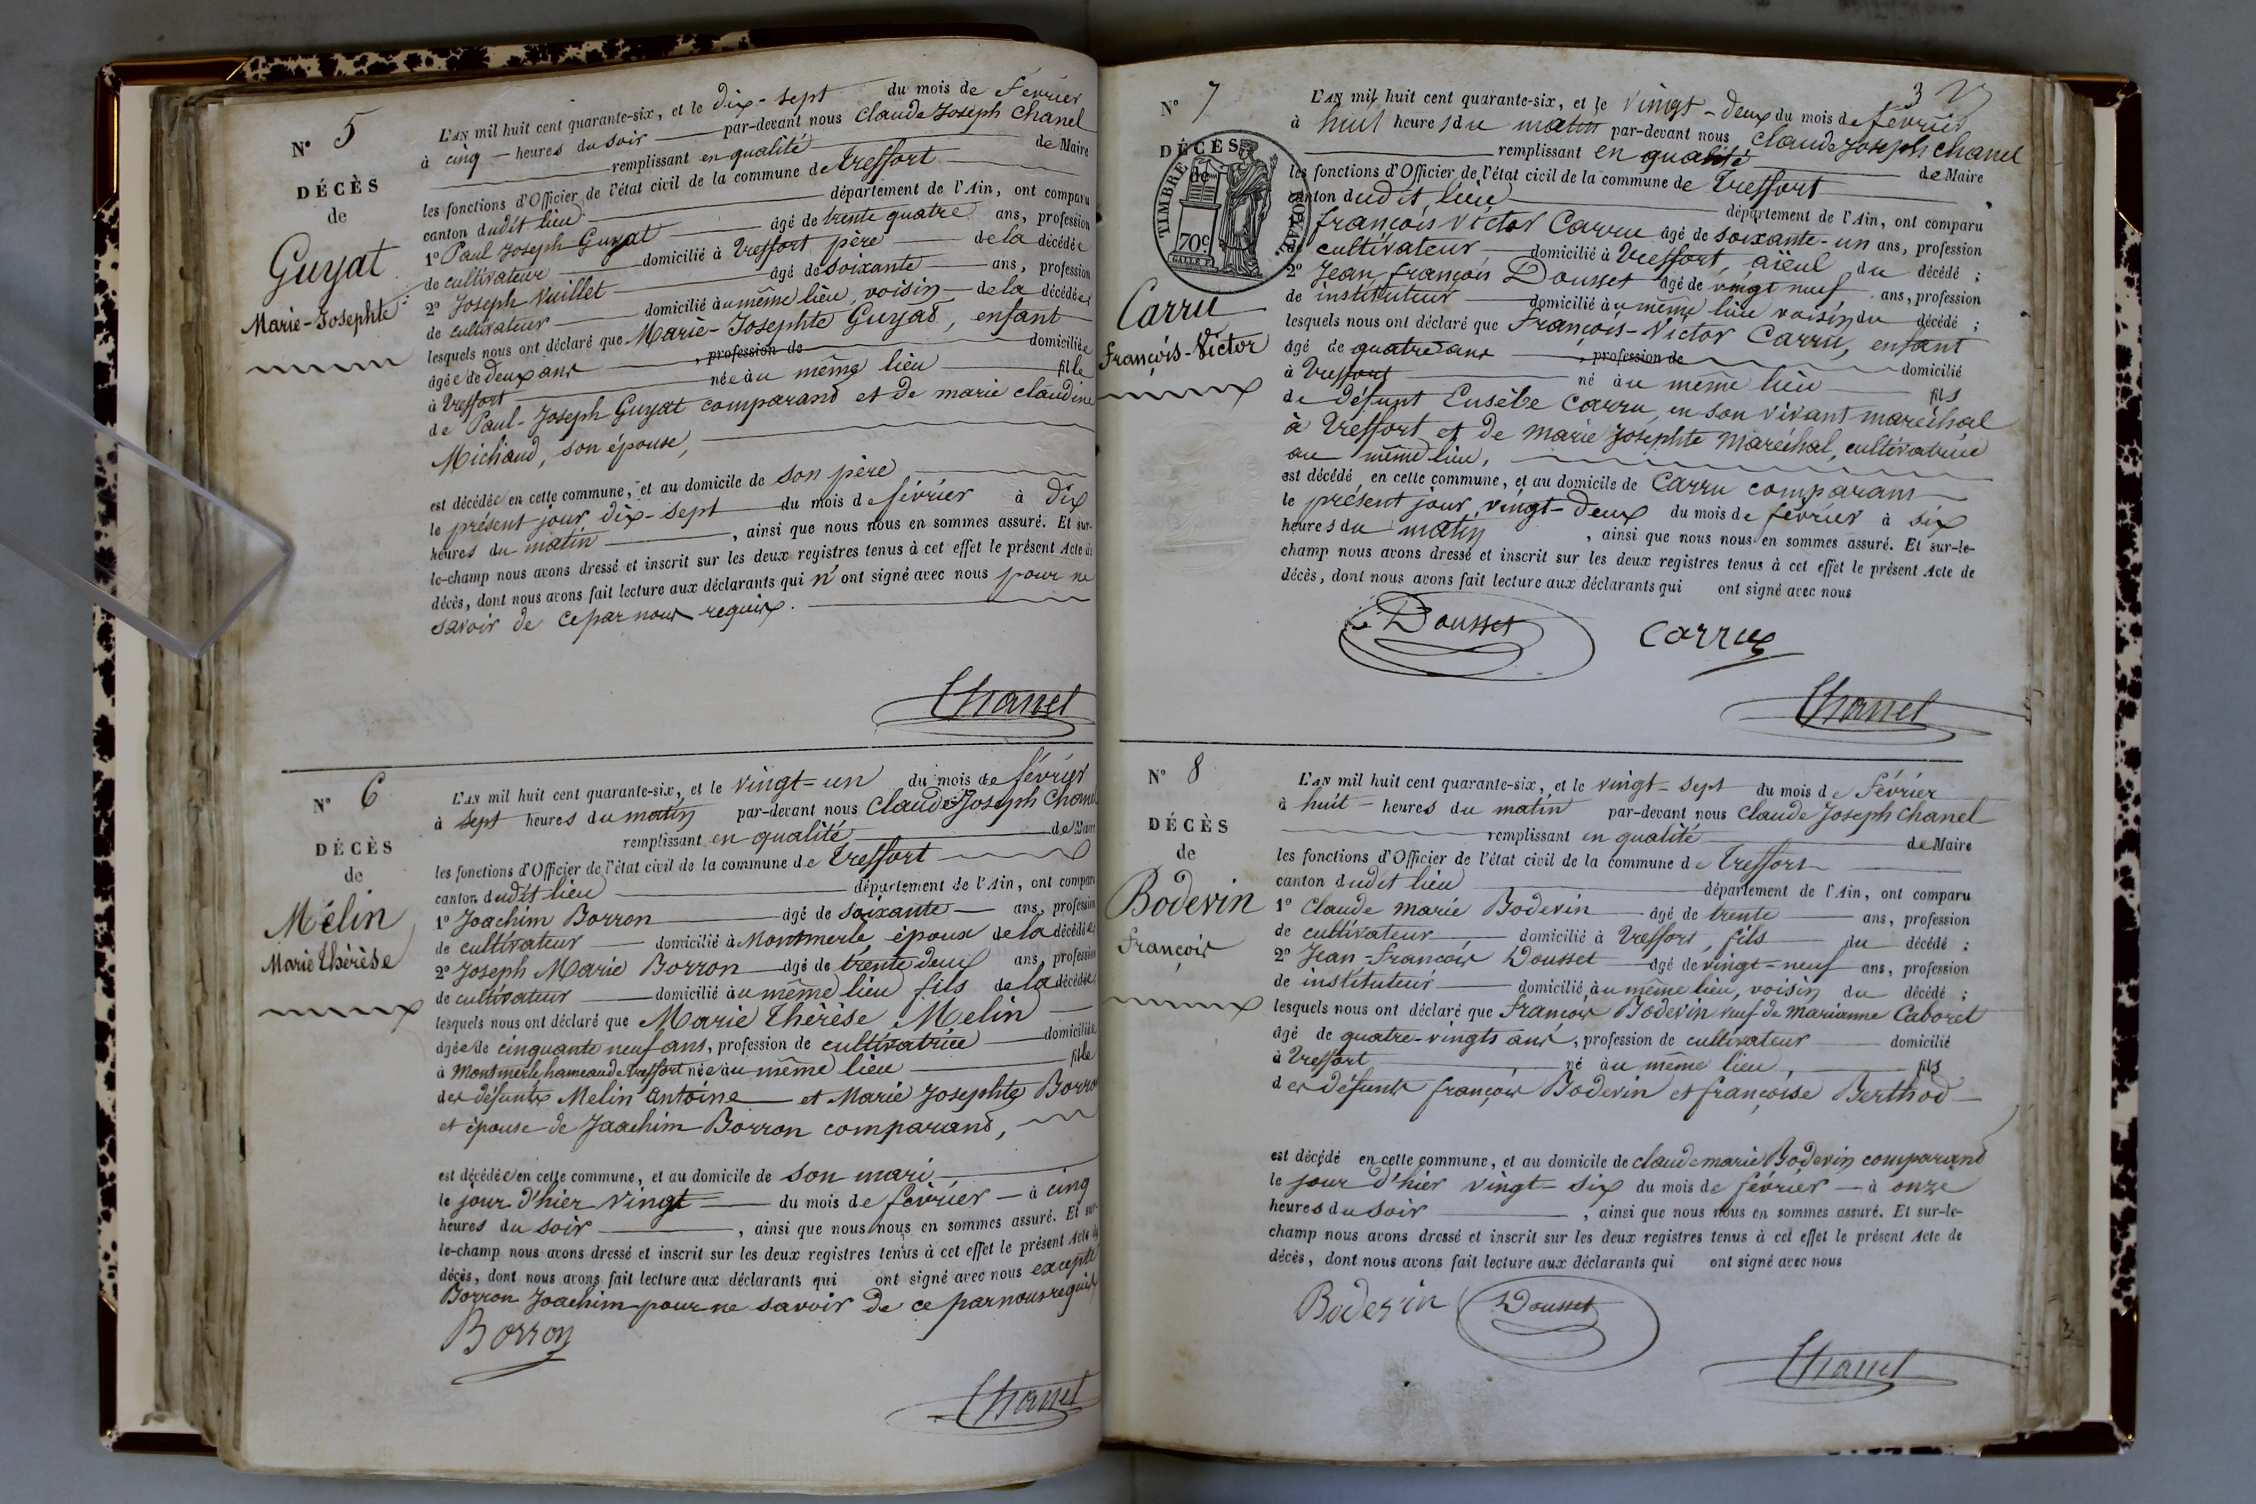 N° 5
DÉCÈS
de
Guyat
Marie-Josephte
L'AN mil huit cent quarante-six, et le dix-sept du mois de février
à cinq heures du soir par-devant nous Claude Joseph Chanel
remplissant en qualité de Maire
les fonctions d'Officier de l'état civil de la commune de Treffort
canton dudit lieu département de l'Ain, ont comparu
1° Paul Joseph Guyat âgé de trente quatre ans, profession
de cultivateur domicilié à Treffort, père de la décédée
2° Joseph Vuillet âgé de soixante ans, profession
de cultivateur domicilié au même lieu, voisin de la décédée
lesquels nous ont déclaré que Marie-Josephte Guyat, enfant
âgée de deux ans, profession de domiciliée
à Treffort née au même lieu fille
de Paul-Joseph Guyat comparand et de marie claudine
Michaud, son épouse,
est décédée en cette commune, et au domicile de son père
le présent jour dix-sept du mois de février à dix
heures du matin, ainsi que nous nous en sommes assuré. Et sur-
le-champ nous avons dressé et inscrit sur les deux registres tenus à cet effet le présent Acte de
décès, dont nous avons fait lecture aux déclarants qui n'ont signé avec nous pour ne
savoir de ce par nous requis.
Chanel
N° 6
DÉCÈS
de
Mélin
Marie Thérèse
L'AN mil huit cent quarante-six, et le vingt-un du mois de février
à sept heures du matin par-devant nous Claude Joseph Chanel
remplissant en qualité de Maire
les fonctions d'Officier de l'état civil de la commune de Treffort
canton dudit lieu département de l'Ain, ont comparu
1° Joachim Borron âgé de soixante ans, profession
de cultivateur domicilié à Montmerle, époux de la décédée
2° Joseph Marie Borron âgé de trente deux ans, profession
de cultivateur domicilié au même lieu fils de la décédée
lesquels nous ont déclaré que Marie Thérèse Melin
âgée de cinquante neuf ans, profession de cultivatrice domiciliée
à Montmerle hameau de Treffort née au même lieu fille
des défunts Melin Antoine et Marie Josephte Borron
et épouse de Joachim Borron comparand,
est décédée en cette commune, et au domicile de son mari
le jour d'hier vingt du mois de février à cinq
heures du soir, ainsi que nous nous en sommes assuré. Et sur-
le-champ nous avons dressé et inscrit sur les deux registres tenus à cet effet le présent Acte de
décès, dont nous avons fait lecture aux déclarants qui ont signé avec nous excepté
Borron Joachim pour ne savoir de ce par nous requis
Borron
Chanel
3
N° 7
DÉCÈS
de
TIMBRE ROYAL
70c
Carru
François-Victor
L'AN mil huit cent quarante-six, et le vingt-deux du mois de février
à huit heures du matin par-devant nous Claude Joseph Chanel
remplissant en qualité de Maire
les fonctions d'Officier de l'état civil de la commune de Treffort
canton dudit lieu département de l'Ain, ont comparu
1° françois Victor Carru âgé de soixante-un ans, profession
de cultivateur domicilié à Treffort, aïeul du décédé ;
2° Jean françois Dousset âgé de vingt neuf ans, profession
de instituteur domicilié au même lieu voisin du décédé ;
lesquels nous ont déclaré que François-Victor Carru, enfant
âgé de quatre ans, profession de domicilié
à Treffort né au même lieu fils
de défunt Eusèbe Carru, en son vivant maréchal
à Treffort et de marie Josephte Maréchal, cultivatrice
au même lieu,
est décédé en cette commune, et au domicile de Carru comparant
le présent jour, vingt-deux du mois de février à six
heures du matin, ainsi que nous nous en sommes assuré. Et sur-le-
champ nous avons dressé et inscrit sur les deux registres tenus à cet effet le présent Acte de
décès, dont nous avons fait lecture aux déclarants qui ont signé avec nous
Dousset Carru
Chanel
N° 8
DÉCÈS
de
Bodevin
François
L'AN mil huit cent quarante-six, et le vingt-sept du mois de Février
à huit heures du matin par-devant nous Claude Joseph Chanel
remplissant en qualité de Maire
les fonctions d'Officier de l'état civil de la commune de Treffort
canton dudit lieu département de l'Ain, ont comparu
1° Claude Marie Bodevin âgé de trente ans, profession
de cultivateur domicilié à Treffort, fils du décédé ;
2° Jean-François Dousset âgé de vingt-neuf ans, profession
de instituteur domicilié au même lieu, voisin du décédé ;
lesquels nous ont déclaré que François Bodevin veuf de Marianne Caboret
âgé de quatre-vingts ans, profession de cultivateur domicilié
à Treffort né au même lieu, fils
des défunts françois Bodevin et françoise Berthod
est décédé en cette commune, et au domicile de claude marie Bodevin comparand
le jour d'hier vingt-six du mois de février à onze
heures du soir, ainsi que nous nous en sommes assuré. Et sur-le-
champ nous avons dressé et inscrit sur les deux registres tenus à cet effet le présent Acte de
décès, dont nous avons fait lecture aux déclarants qui ont signé avec nous
Bodevin Dousset
Chanel